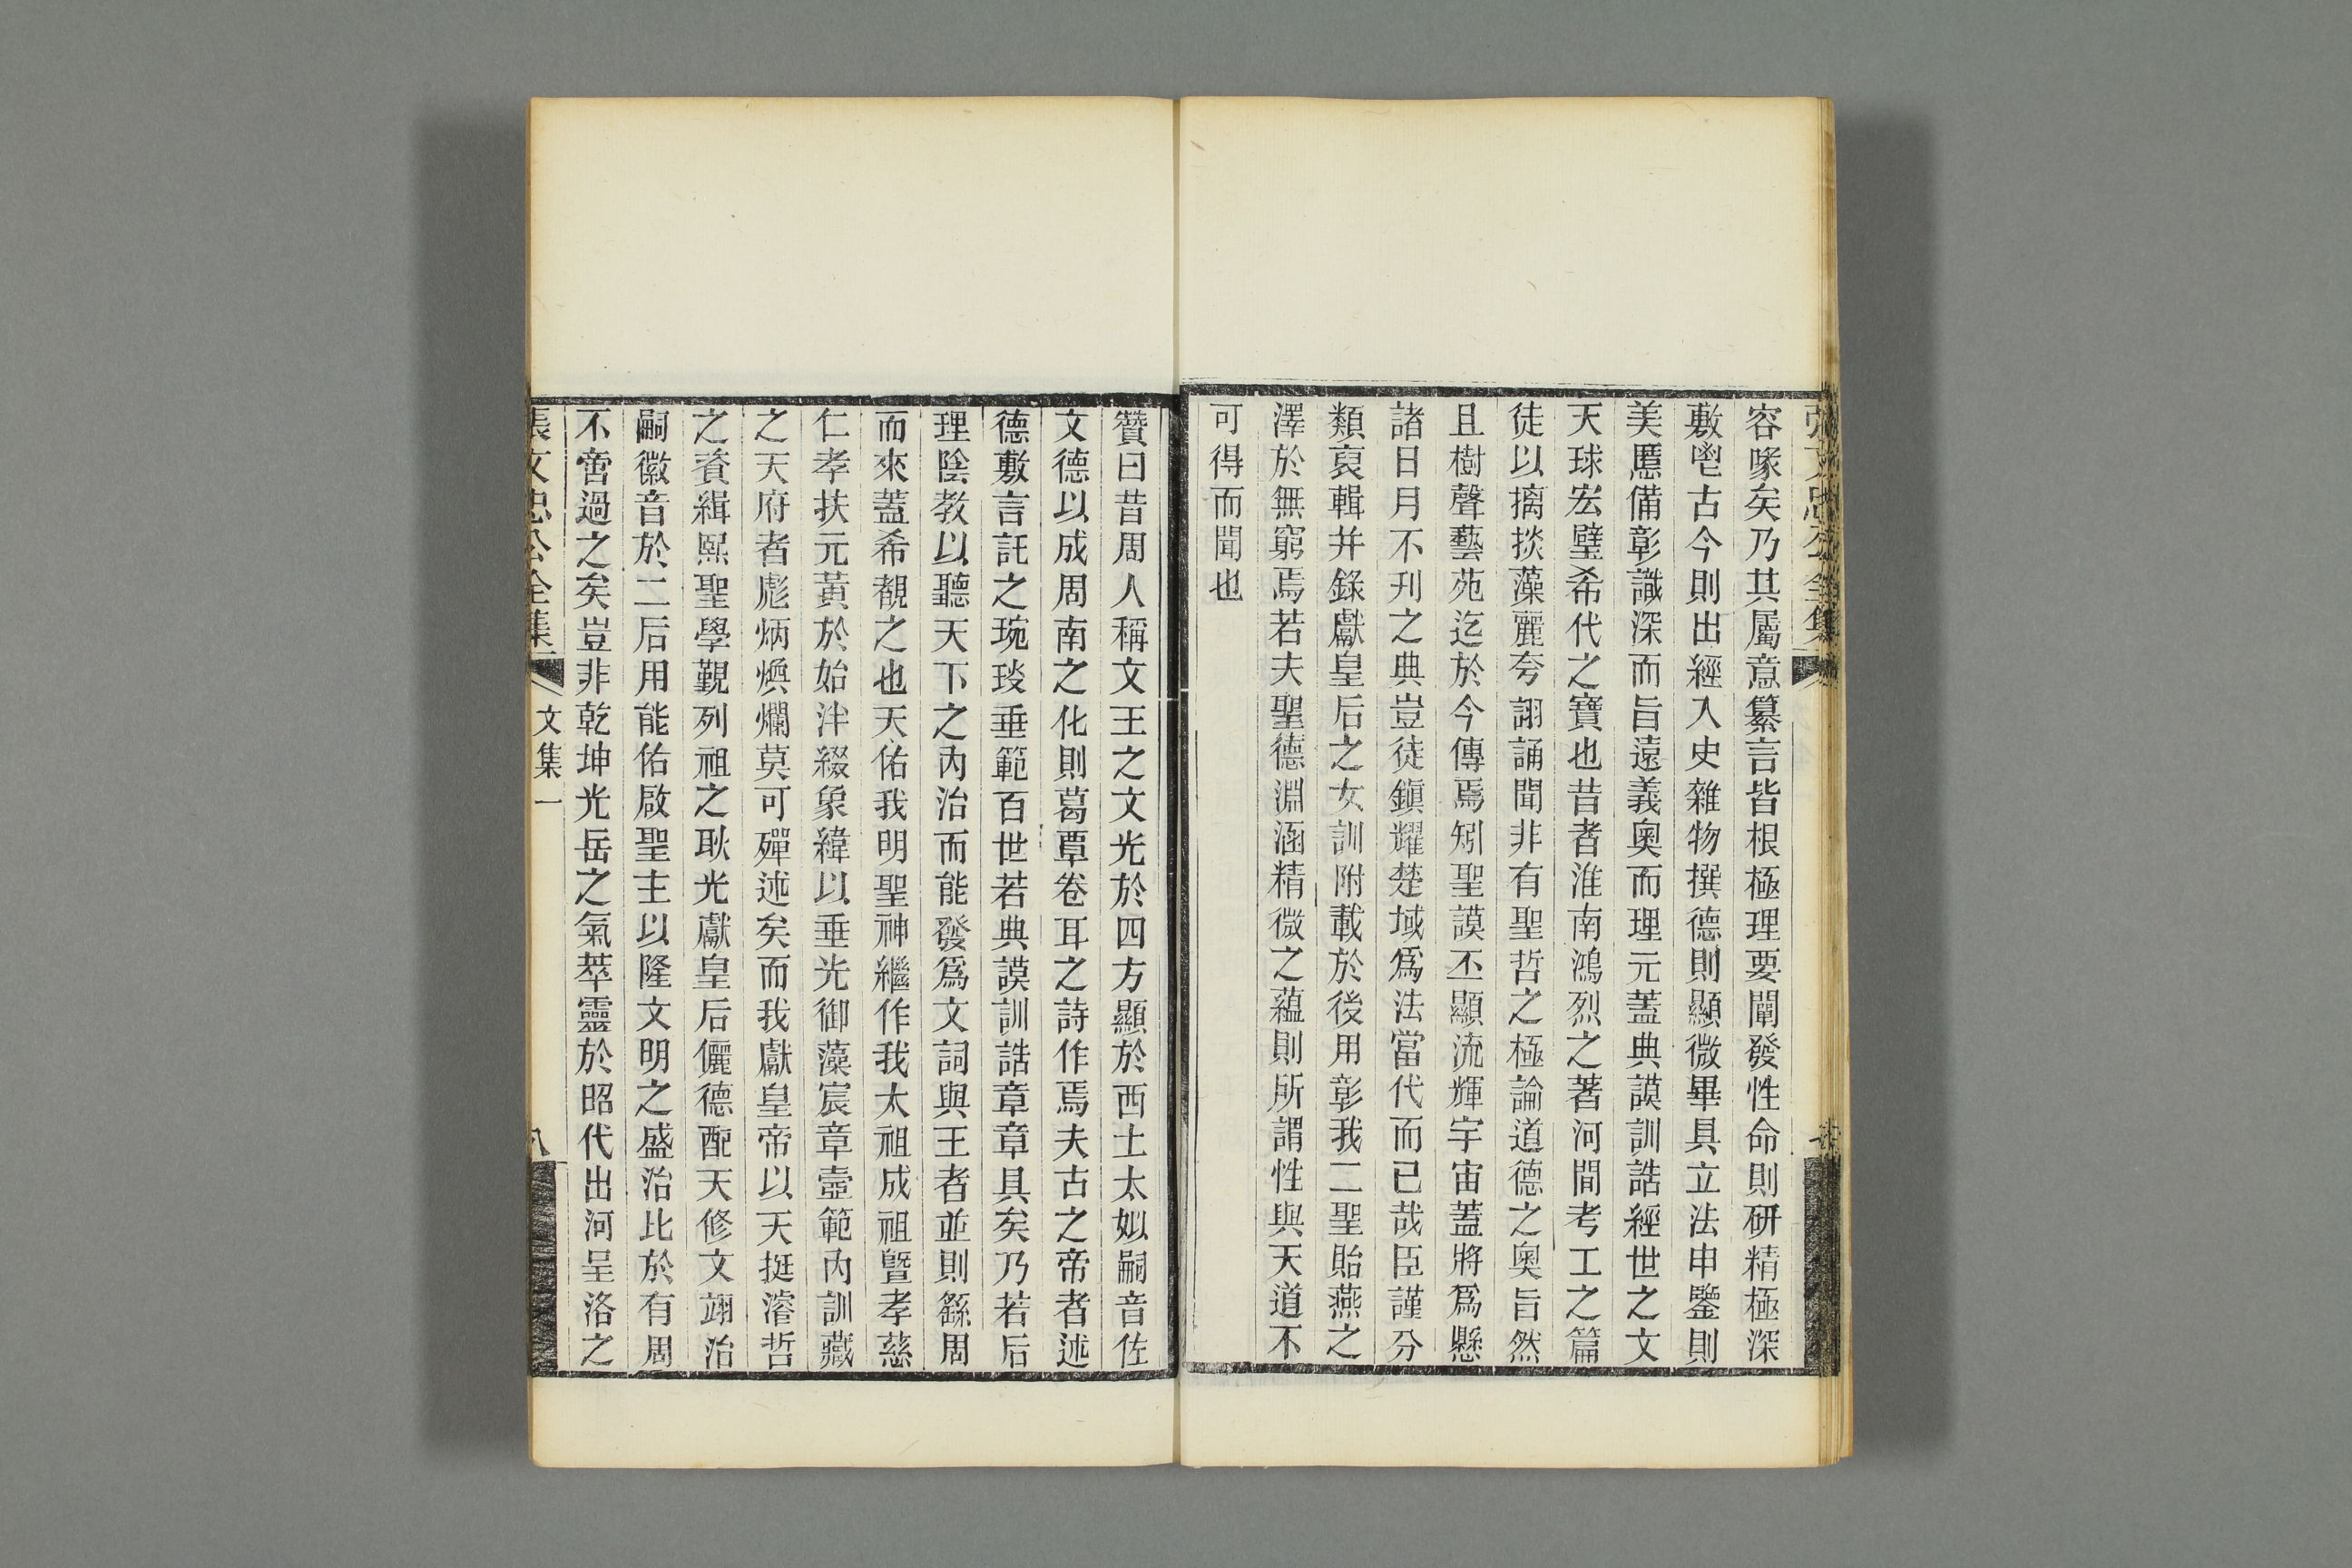 容喙矣乃其屬意纂言皆根極理要闡發性命則研精極深
敷鬯古今則出經入史雜物撰德則顯微畢具立法申鑒則
美慝備彰識深而旨遠義奧而理元蓋典謨訓誥經世之文
天球宏璧希代之寶也昔者淮南鴻烈之著河間考工之篇
徒以摛掞藻麗夸詡誦聞非有聖哲之極論道德之奧旨然
且樹聲藝苑迄於今傳焉矧聖謨丕顯流輝宇宙蓋將爲懸
諸日月不刊之典豈徒鎭耀楚域爲法當代而已哉臣謹分
類裒輯并錄獻皇后之女訓附載於後用彰我二聖貽燕之
澤於無窮焉若夫聖德淵涵精微之蘊則所謂性與天道不
可得而聞也
贊曰昔周人稱文王之文光於四方顯於西土太姒嗣音佐
文德以成周南之化則葛覃卷耳之詩作焉夫古之帝者述
德敷言託之琬琰垂範百世若典謨訓誥章章具矣乃若后
理陰教以聽天下之內治而能發爲文詞與王者並則繇周
而來蓋希覩之也天佑我明聖神繼作我太祖成祖曁孝慈
仁孝扶元黃於始泮綴象緯以垂光御藻宸章壼範內訓藏
之天府者彪炳煥爛莫可殫述矣而我獻皇帝以天挺濬哲
之資緝熙聖學覲列祖之耿光獻皇后儷德配天修文翊治
嗣徽音於二后用能佑啟聖主以隆文明之盛治比於有周
不啻過之矣豈非乾坤光岳之氣萃靈於昭代出河呈洛之
張文忠公全集 文集一 八